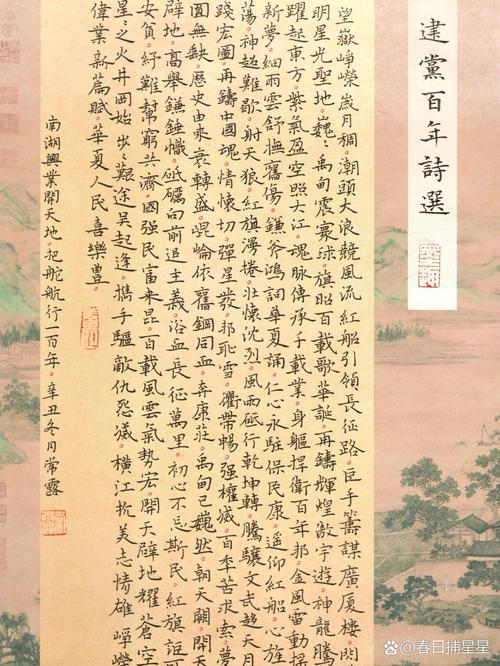 建黨百年詩選
望嶽崢嶸歲月稠。潮頭大浪競風流。紅船引領長征路。巨手籌謀廣廈樓。
明星光聖地。巍巍禹甸震寰球。旗昭百載歌華誕。再鑄輝煌激宇遊。神龍騰
躍起東方。紫氣盈空照大江。魂脉傳承千載業。身軀捍衛百年邦。金風雷動
新夢。細雨雲舒撫舊傷。鎌斧鴻詞華夏誦。仁心永駐保民康。遥仰紅船心
蕩。神超難歇。射天狼。紅旗漫捲。壯懷沈烈。風雨砥行乾坤轉。騰驤文武超天
踐宏圖。再鑄中國魂。情懷切。彈星發。邦恥雪。衢帶暢。强權滅。百年苦求索。
圓無缺。歷史由來衰轉盛。崑崙依舊鋼同血。奔康莊。禹甸已巍然。朝天闕。開天
闢地。高舉鎌錘幟。砥礪向前追主義。浴血長征萬里。初心不忘斯民。紅旗
安貧紓難幫窮。共濟國强民富。來昆。百載風雲氣勢宏。開天辟地耀蒼空。
星之火井岡始。出出艱途吴起逢。携手驅敵仇怨滅。橫江抗美志情雄。崢嶸
偉業新篇賦。華夏人民喜樂豐。
南湖興業開天地。把舵航行一百年。辛丑冬月常露
@春日捕星星